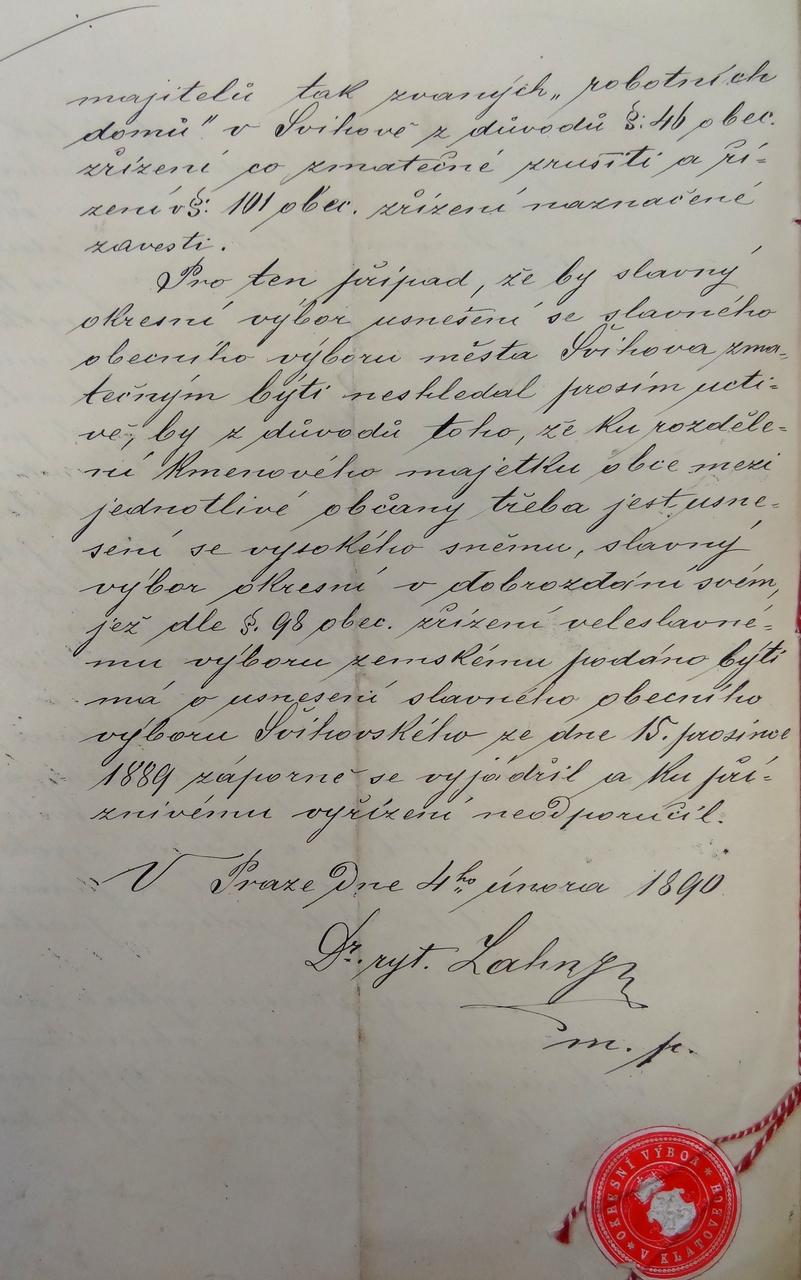 majitelů tak zvaných „robotních
domů" v Švihově z důvodů §: 46 obec.
zřízení co zmatečné zrušiti a ří-
zení v §: 101 obec. zřízení naznačené
zavesti.
Pro ten případ, že by slavný
okresní výbor usnešení se slavného
obecního výboru města Švihova zma-
tečným býti neshledal prosím ucti-
vě, by z důvodů toho, že ku rozděle-
ní kmenového majetku obce mezi
jednotlivé občany třeba jest usne-
sení se vysokého sněmu, slavný
výbor okresní v dobrozdání svém,
jež dle §. 98 obec. zřízení veleslavné-
mu výboru zemskému podáno býti
má o usnesení slavného obecního
výboru Švihovského ze dne 15. prosince
1889 záporně se vyjádřil a ku pří-
znivému vyřízení neodporučil.
V Praze dne 4ho února 1890
Dr. ryt.
m. p.
* OKRESNÍ VÝBOR * V KLATOVECH